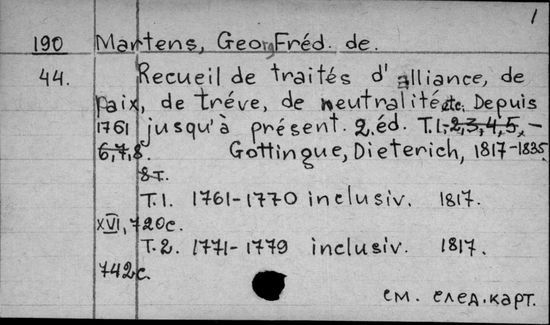 1
190 Martens, Georg Fréd. de.
44. Recueil de traités d'alliance, de
paix, de tréve, de neutralité etc. Depuis
1761 jusqu'à présent. 2.éd. T.1,-2,3,4,5,-
6,7,8. Gottingue, Dieterich, 1817-1835.
8 т.
T.1. 1761-1770 inclusiv. 1817.
XVI, 720 c.
T.2. 1771-1779 inclusiv. 1817.
742 c.
см. след.карт.